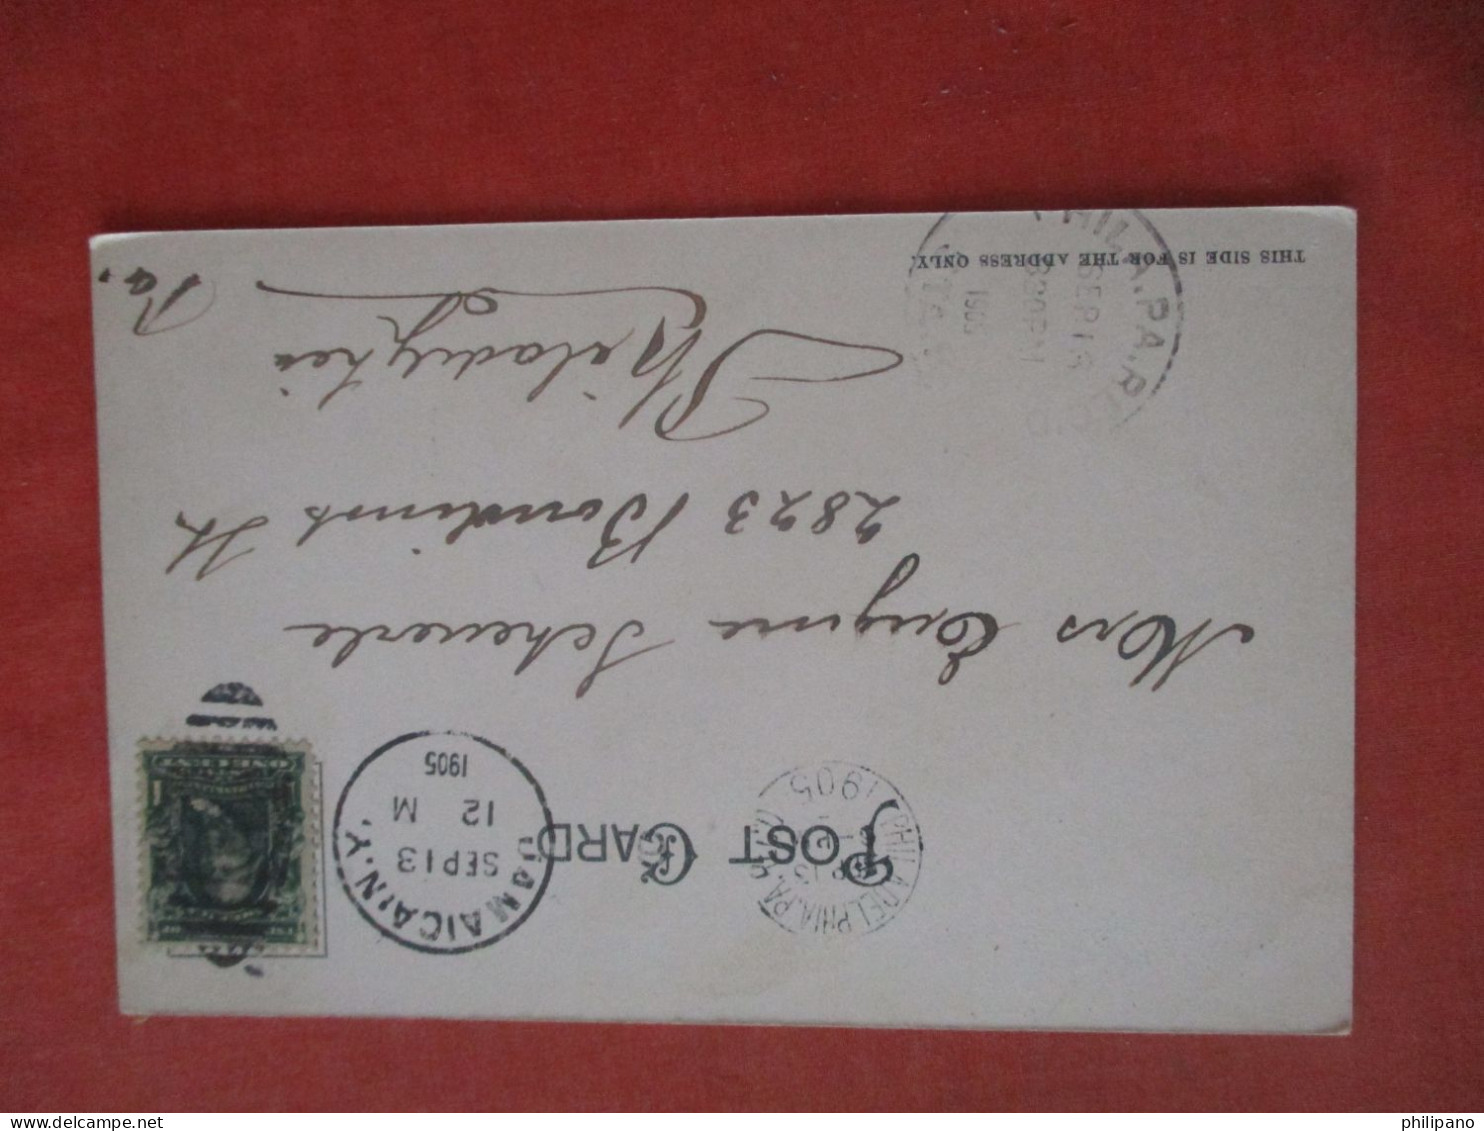 POST CARD
PHILADELPHIA, PA.
SEP 13
1905
JAMAICA, N.Y.
SEP 13
12 M
1905
ONE CENT
Mrs Eugene Scheuerle
2823 Boudinot St
Philadelphia
Pa.
THIS SIDE IS FOR THE ADDRESS ONLY.
PHILA. PA. REC'D
SEP 13
330PM
1905
STA.
philipano